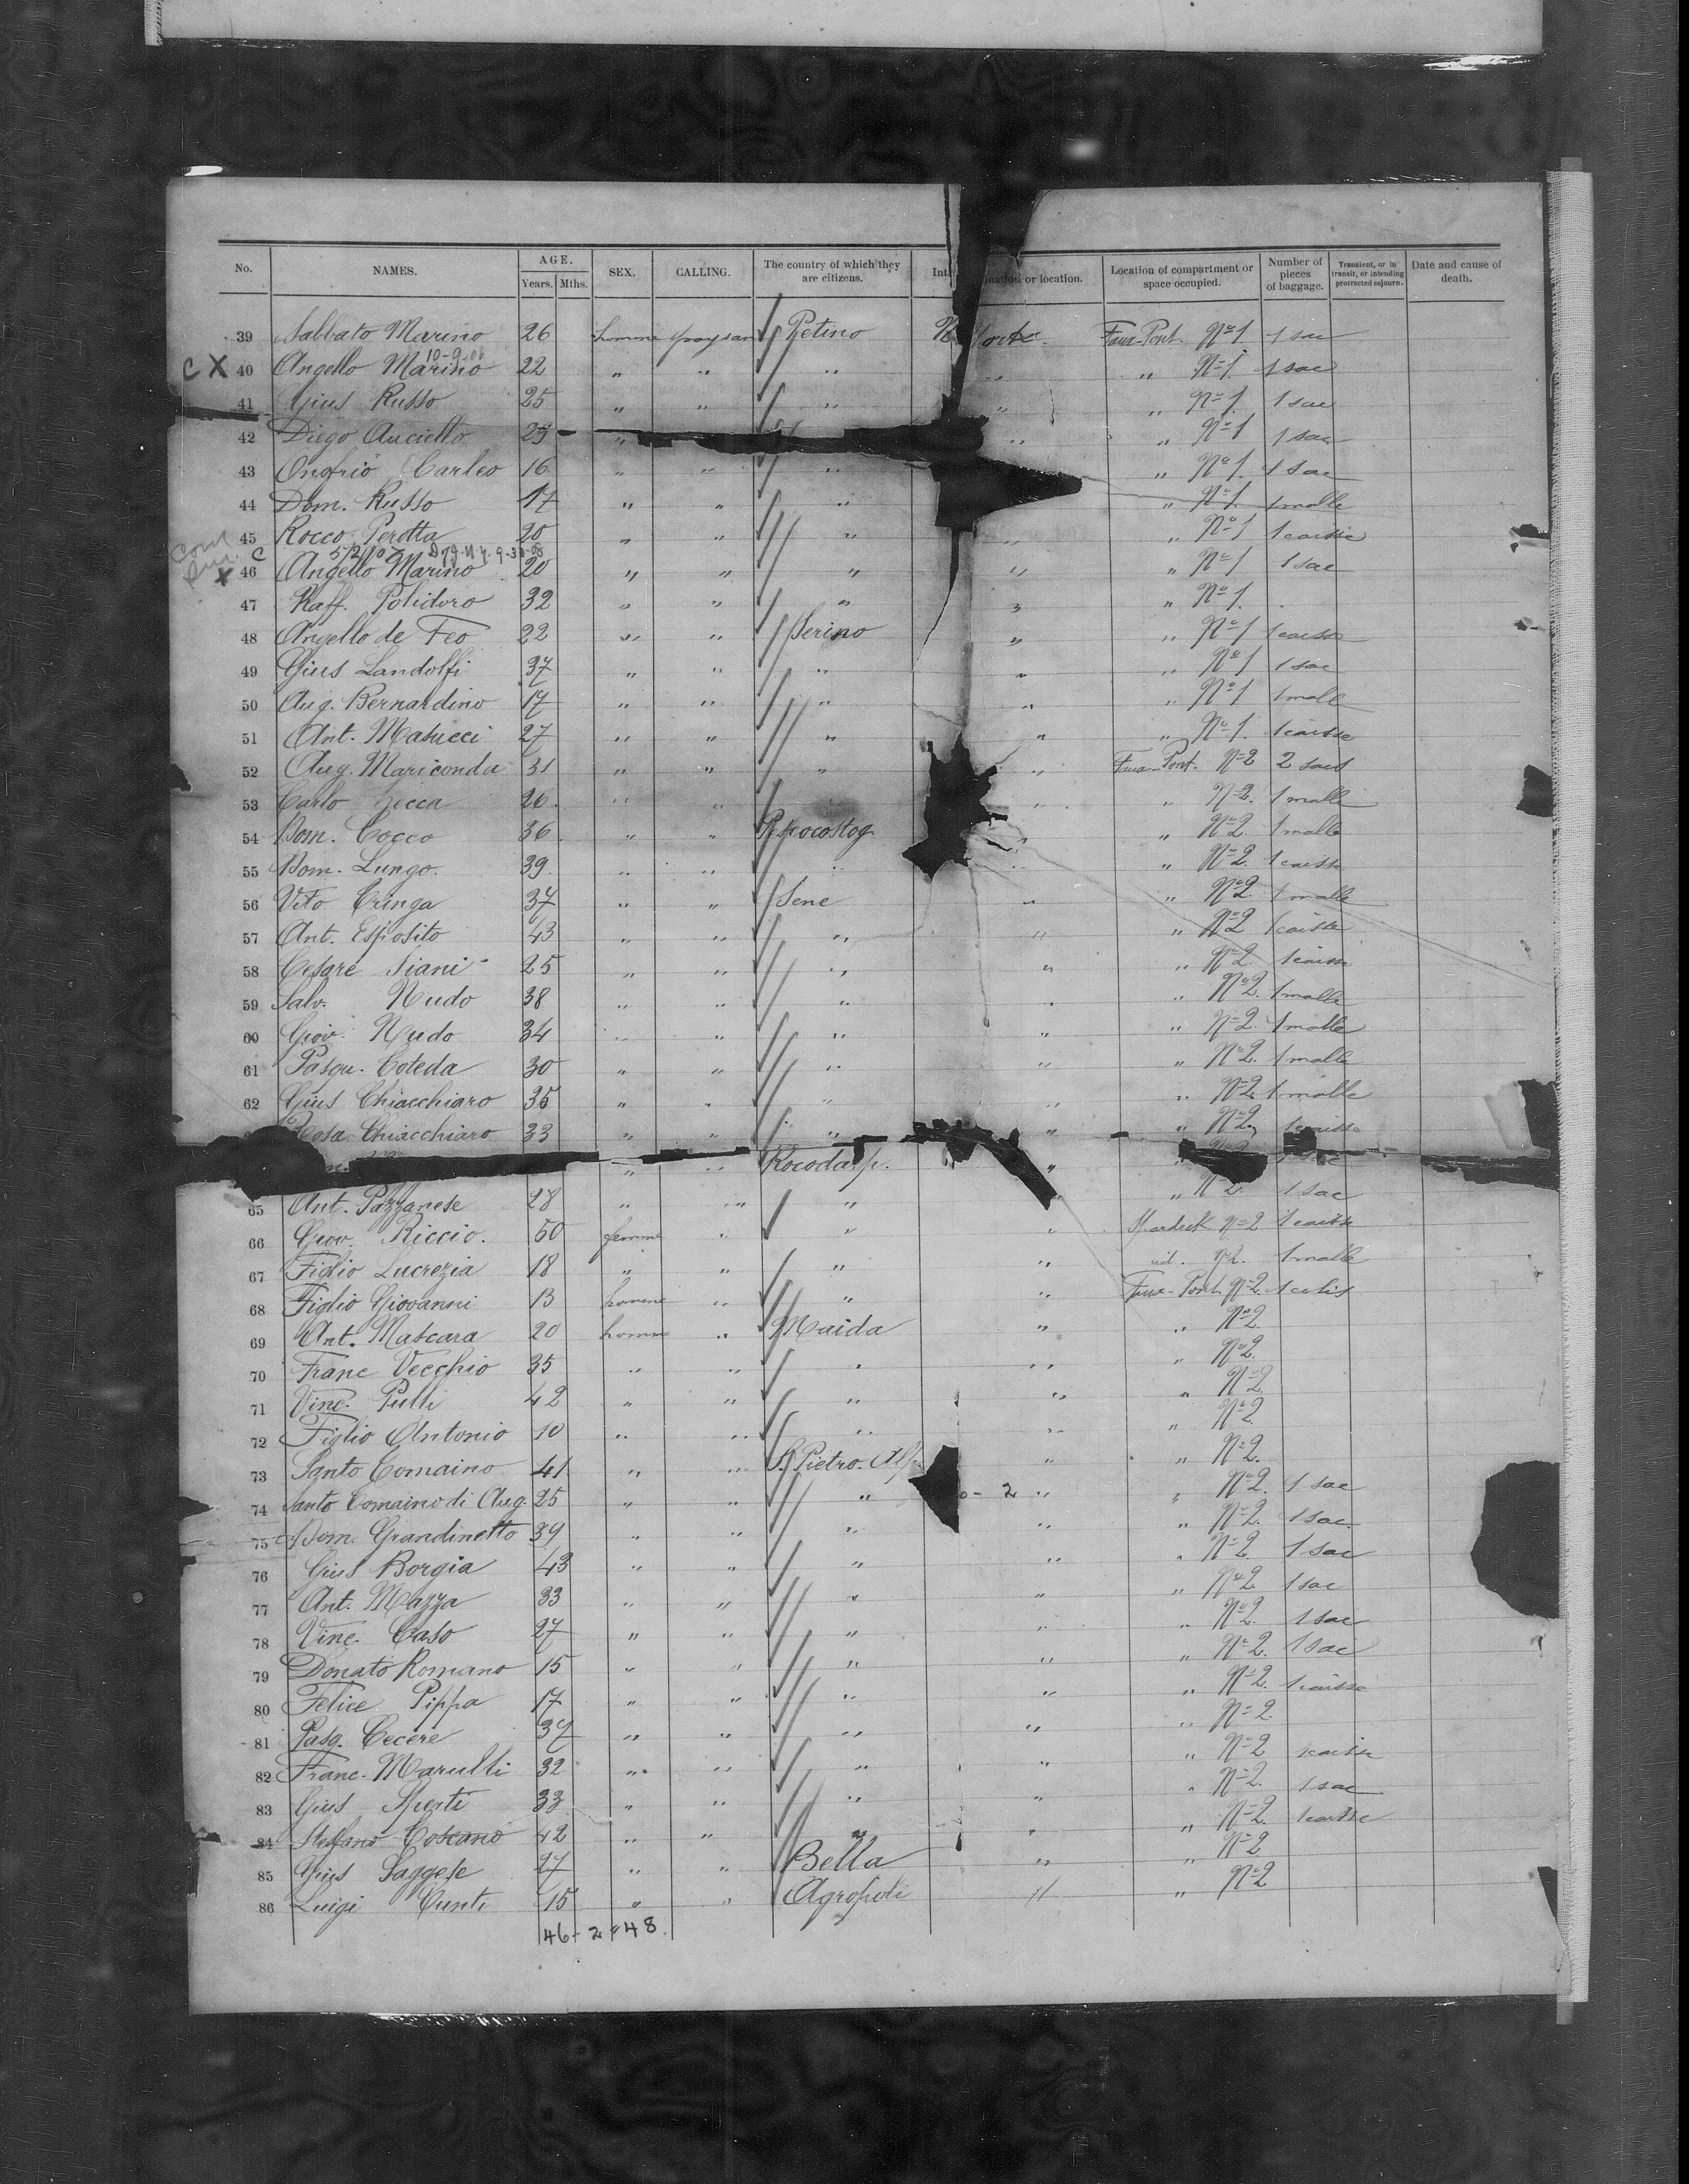 No. NAMES. AGE. Years. Mths. SEX. CALLING. The country of which they are citizens. nation or location. Location of compartment or space occupied. Number of pieces of baggage. Transient, or in transit, or intending protracted sojourn. Date and cause of death.
39 Sabbato Marino 26 homme paysan Petino N. York. Faux-Pont. No 1 1 sac
10-9-06
C X 40 Angello Marino 22 " " " " " No 1 1 sac
41 Gius Russo 25 " " " " " No 1. 1 sac
42 Diego Auciello 23 " " " No 1 1 sac
43 Onofrio Carleo 16 " " " " No 1. 1 sac
44 Dom. Russo 17 " " " " No 1. 1 malle
45 Rocco Perotta 20 " " " " " No 1 1 caisse
C
X 46 Angello Marino 20 " " " " " No 1 1 sac
47 Raff. Polidoro 32 " " " " " No 1.
48 Angello de Feo 22 " " Serino " " No 1 1 caisse
49 Gius Landolfi 37 " " " " " No 1 1 sac
50 Aug. Bernardino 17 " " " " " No 1 1 mall
51 Ant. Masucci 27 " " " " " No 1. 1 caisse
52 Aug. Mariconda 31 " " " " Faux-Pont. No 2 2 sacs
53 Carlo 20 " " " " No 2. 1 malle
54 Dom. Cocco 36 " " " " No 2. 1 malle
55 Dom. Lungo. 39 " " " " " No 2. 1 caisse
56 Vito Cringa 37 " " Sene " " No 2 1 malle
57 Ant. Esposito 43 " " " " " No 2 1 caisse
58 Cesare Siani 25 " " " " " No 2. 1 caisse
59 Salv. Nudo 38 " " " " " No 2. 1 malle
60 Giov. Nudo 34 " " " " " No 2. 1 malle
61 Pasqu. Coteda 30 " " " " " No 2. 1 malle
62 Gius Chiacchiaro 35 " " " " " No 2 1 malle
Rosa Chiacchiaro 33 " " " " " No 2 1 caisse
" " " 1 sac
65 Ant. Pazzanese 28 " " " " No 2. 1 sac
66 Giov. Riccio. 50 femme " " " No 2 1 caisse
67 Figlio Lucrezia 18 " " " " id. No 2. 1 malle
68 Figlio Giovanni 13 homme " " " Faux-Pont. No 2. 1 colis
69 Ant. Mascara 20 homme " Maida " " No 2.
70 Franc Vecchio 35 " " " " " No 2.
71 Vinc. Pulli 42 " " " " " No 2
72 Figlio Antonio 10 " " " " " No 2
73 Santo Comaino 41 " " S. Pietro. " " No 2.
74 Santo Comaino di Aug. 25 " " " - 2 " " No 2. 1 sac
75 Dom. Grandinetto 39 " " " " " No 2. 1 sac.
76 Gius Borgia 43 " " " " " No 2. 1 sac
77 Ant. Mazza 33 " " " " " No 2. 1 sac
78 Vinc. Caso 27 " " " " " No 2. 1 sac
79 Donato Romano 15 " " " " " No 2. 1 sac
80 Felice Pippa 17 " " " " " No 2. 1 caisse
81 Pasq. Cecere 37 " " " " " No 2.
82 Franc. Marulli 32 " " " " " No 2 1 caisse
83 Gius 33 " " " " " No 2. 1 sac
84 Steffano Coscano 42 " " " " " No 2. 1 caisse
85 Gius Saggese 27 " " Bella " " No 2
86 Luigi Cunti 15 " " Agropoli " " No 2
46 - 2 = 48.